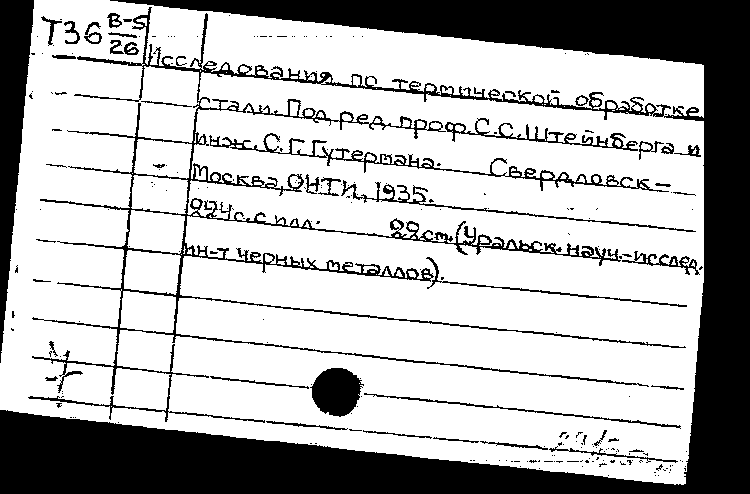 Т36 В-5
26
Исследования по термической обработке
стали. Под ред. проф. С.С. Штейнберга и
инж. С.Г. Гутермана. Свердловск-
Москва, ОНТИ, 1935.
224с. с илл. 22см. (Уральск. науч.-исслед.
ин-т черных металлов).